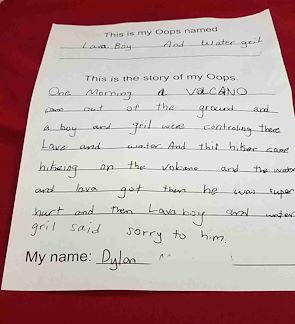 This is my Oops named
Lava Boy And Water gril
This is the story of my Oops.
One Morning a VOLCANO
came out of the ground and
a boy and gril were controling there
Lave and water And this hiker came
hikeing on the volcano and the water
and lava got then he was super
hurt and then Lava boy and water
gril said sorry to him.
My name: Dylan